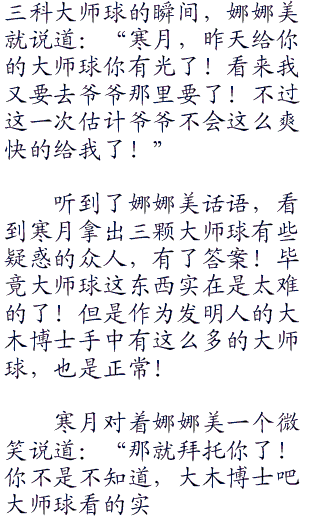 三科大师球的瞬间，娜娜美
就说道：“寒月，昨天给你
的大师球你有光了！看来我
又要去爷爷那里要了！不过
这一次估计爷爷不会这么爽
快的给我了！”
听到了娜娜美话语，看
到寒月拿出三颗大师球有些
疑惑的众人，有了答案！毕
竟大师球这东西实在是太难
的了！但是作为发明人的大
木博士手中有这么多的大师
球，也是正常！
寒月对着娜娜美一个微
笑说道：“那就拜托你了！
你不是不知道，大木博士吧
大师球看的实